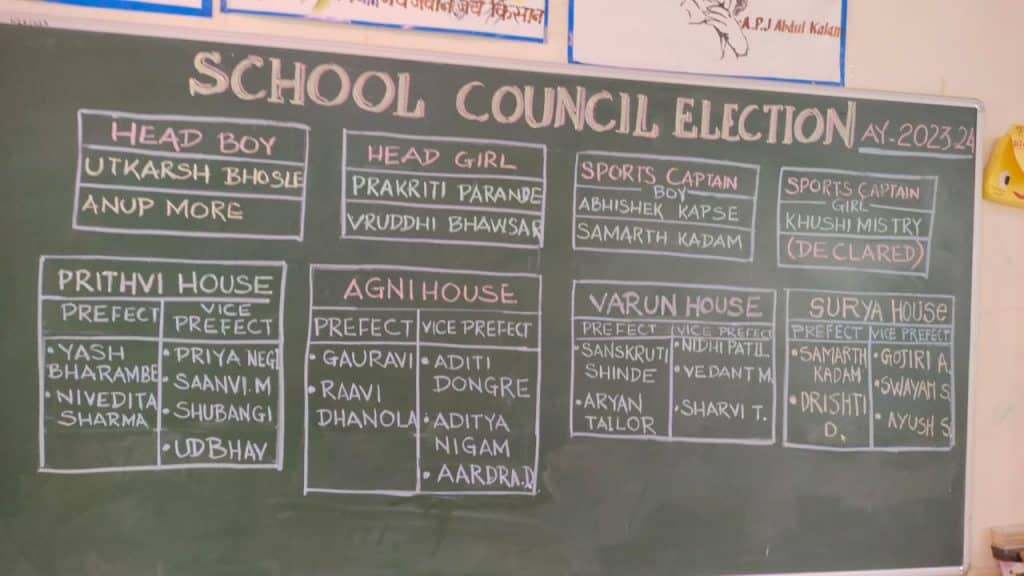 जय जवान जय किसान
A.P.J Abdul Kalam
SCHOOL COUNCIL ELECTION AY-2023-24
HEAD BOY
UTKARSH BHOSLE
ANUP MORE
HEAD GIRL
PRAKRITI PARANDE
VRUDDHI BHAWSAR
SPORTS CAPTAIN
BOY
ABHISHEK KAPSE
SAMARTH KADAM
SPORTS CAPTAIN
GIRL
KHUSHI MISTRY
(DECLARED)
PRITHVI HOUSE
PREFECT
YASH
BHARAMBE
NIVEDITA
SHARMA
VICE
PREFECT
PRIYA NEGI
SAANVI.M
SHUBANGI
UDBHAV
AGNI HOUSE
PREFECT
GAURAVI
RAAVI
DHANOLA
VICE PREFECT
ADITI
DONGRE
ADITYA
NIGAM
AARDRA.D
VARUN HOUSE
PREFECT
SANSKRUTI
SHINDE
ARYAN
TAILOR
VICE PREFECT
NIDHI PATIL
VEDANT M.
SHARVI T.
SURYA HOUSE
PREFECT
SAMARTH
KADAM
DRISHTI
D.
VICE PREFECT
GOJIRI A.
SWAYAM S.
AYUSH S.